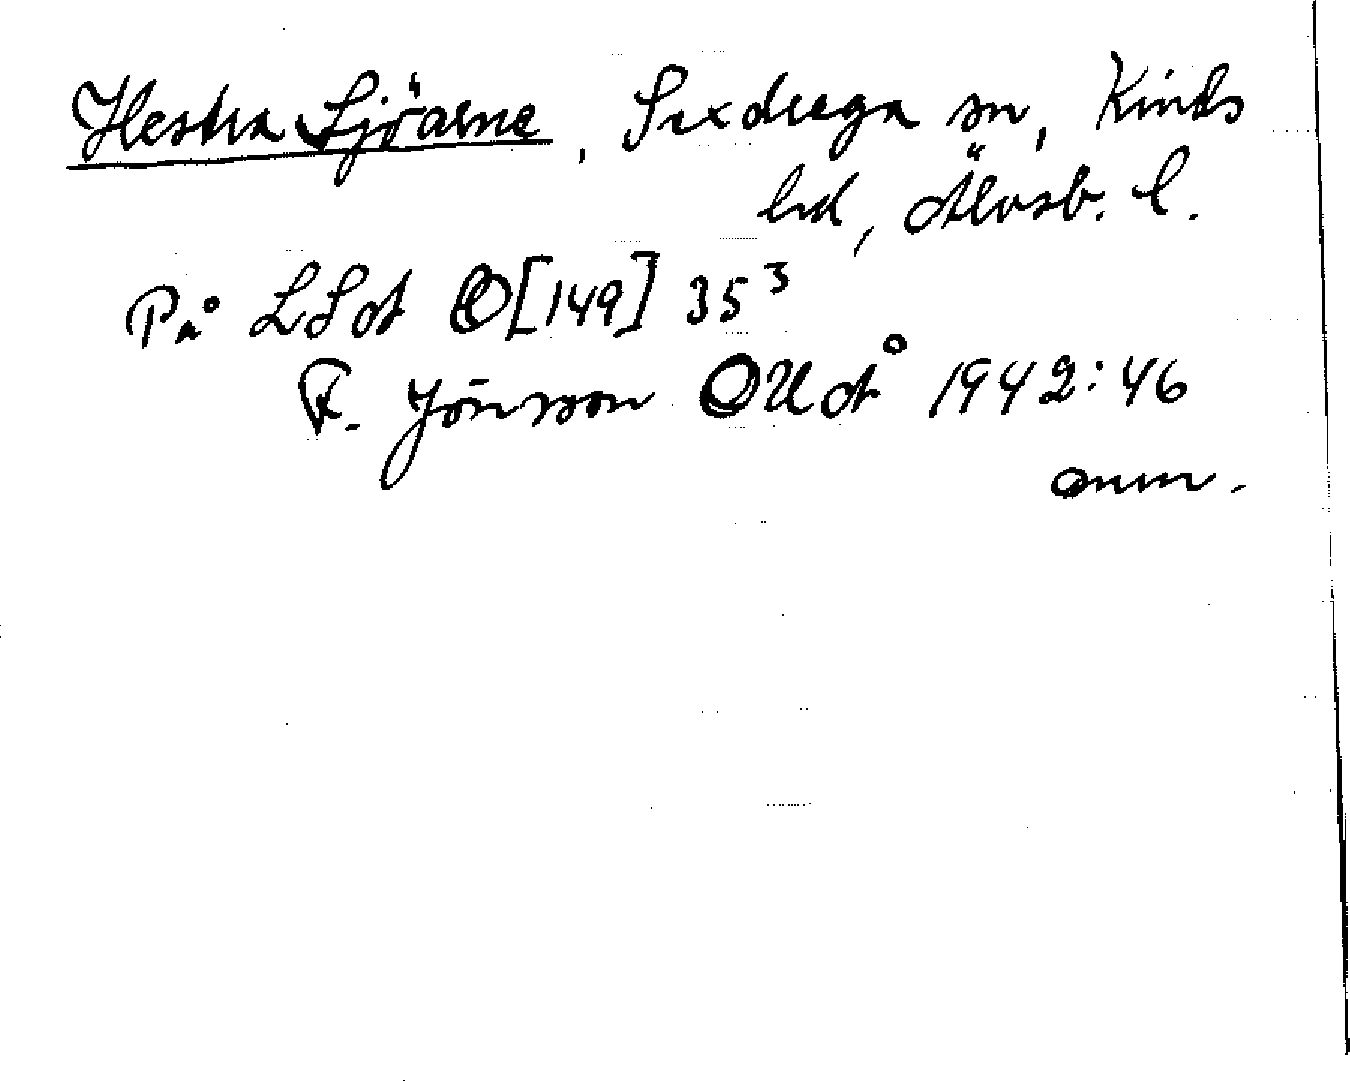 Hestra Sjöarne, Sexdrega sn, Kinds
hd, Älvsb. l.
På LSA O[149] 35³
F. Jönsson OUÅ 1942:46